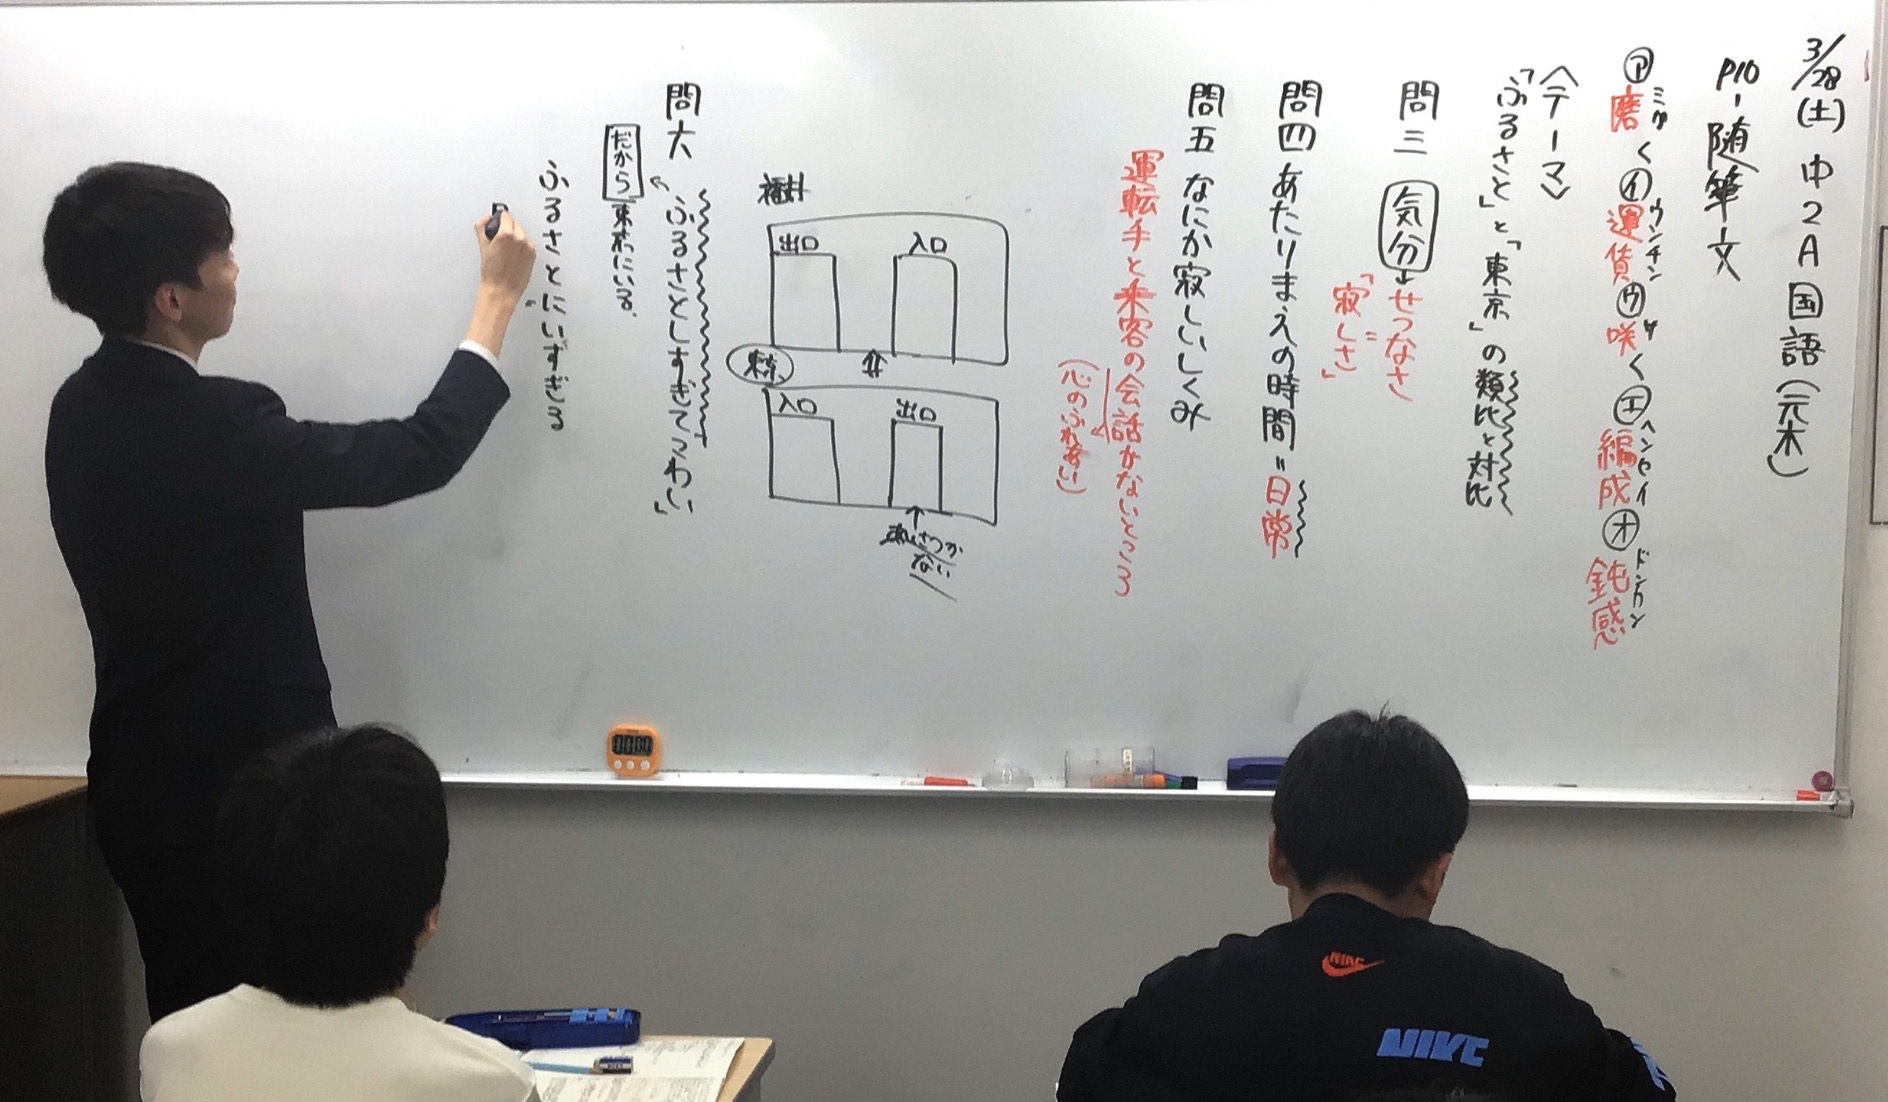 3/28(土) 中2A 国語(元木)
P10- 随筆文
㋐磨く ㋑運賃 ㋒咲く ㋓編成 ㋔鈍感
ミガ ウンチン サ ヘンセイ ドンカン
〈テーマ〉
「ふるさと」と「東京」の類比と対比
問三 気分→せつなさ
=
「寂しさ」
問四 あたりまえの時間=日常
問五 なにか寂しいしくみ
運転手と乗客の会話がないところ
(心のふれあい)
福井
出口 入口
東京
入口 出口
ない
問六 「ふるさとしすぎてこわい」
だから 東京にいる。
ふるさとにいすぎる
0000
NIKE
NIKE